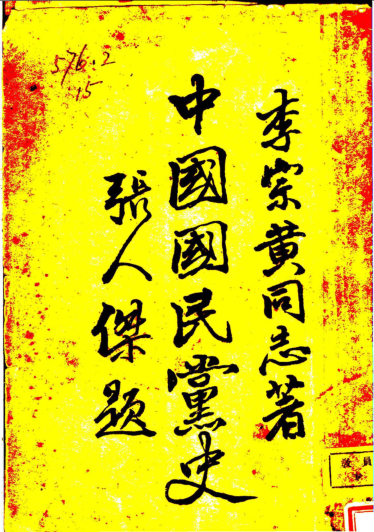 李宗黄同志著
中國國民黨史
張人傑題
576.2
15